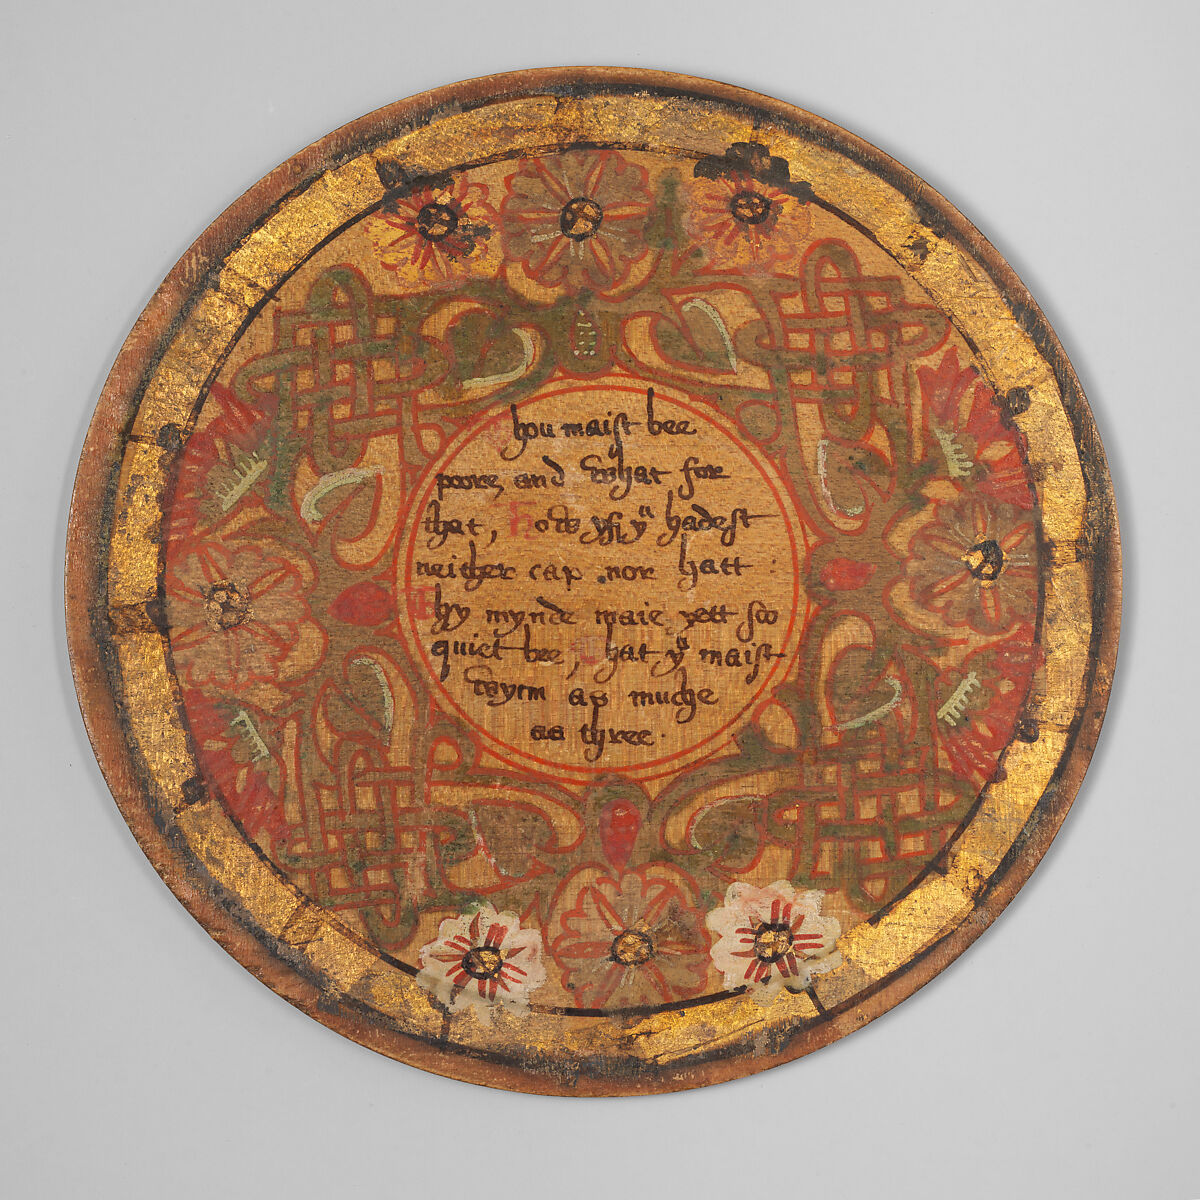 hou maist bee
poore, and what for
that, How yf yu hadest
neither cap nor hatt :
Thy mynde maie yett soo
quiet bee, hat yu maist
wynn as muche
as three.